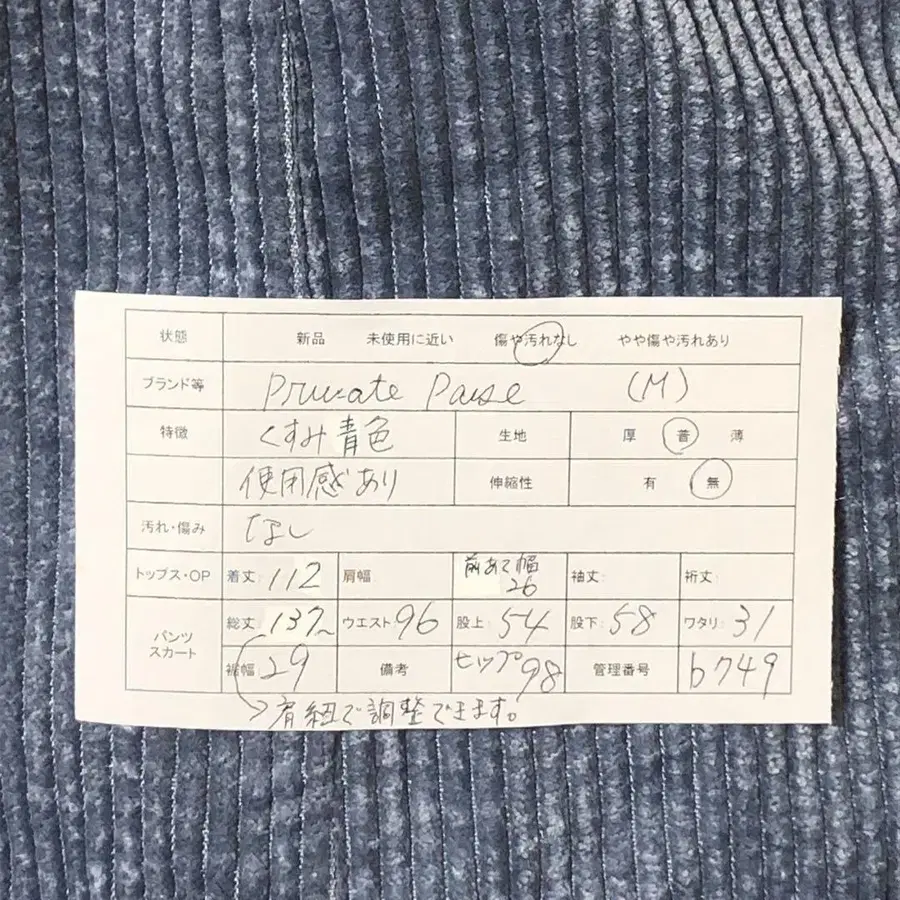 状態 新品 未使用に近い 傷や汚れなし やや傷や汚れあり
ブランド等 Private Pause (M)
特徴 くすみ青色 生地 厚 普 薄
使用感あり 伸縮性 有 無
汚れ・傷み なし
トップス・OP 着丈: 112 肩幅 前あて幅 26 袖丈: 裄丈:
パンツ スカート 総丈: 137~ ウエスト: 96 股上: 54 股下: 58 ワタリ: 31
裾幅: 29 備考 ヒップ98 管理番号 b749
→肩紐で調整できます。